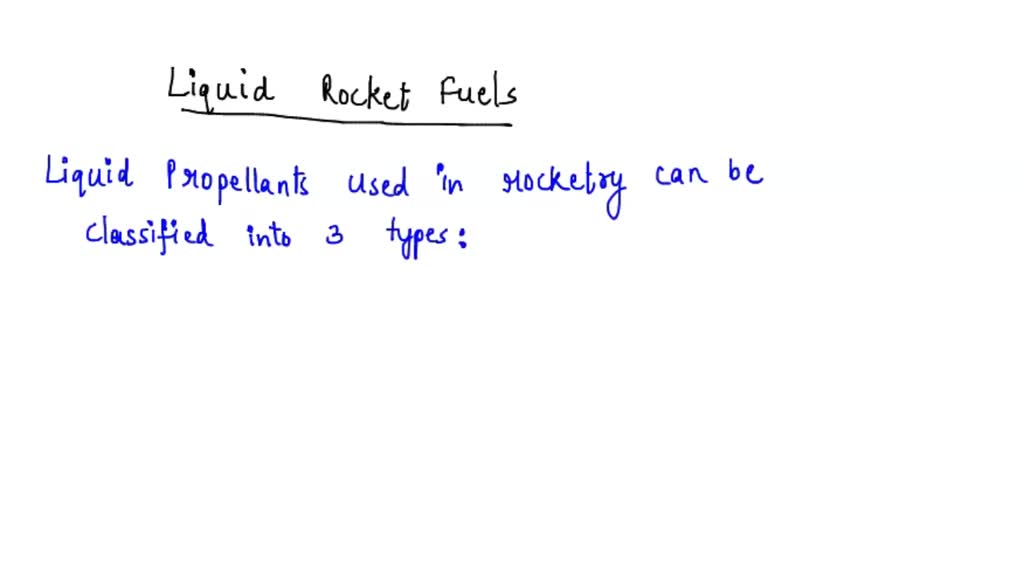 Liquid Rocket Fuels
Liquid Propellants used in rocketry can be
classified into 3 types: